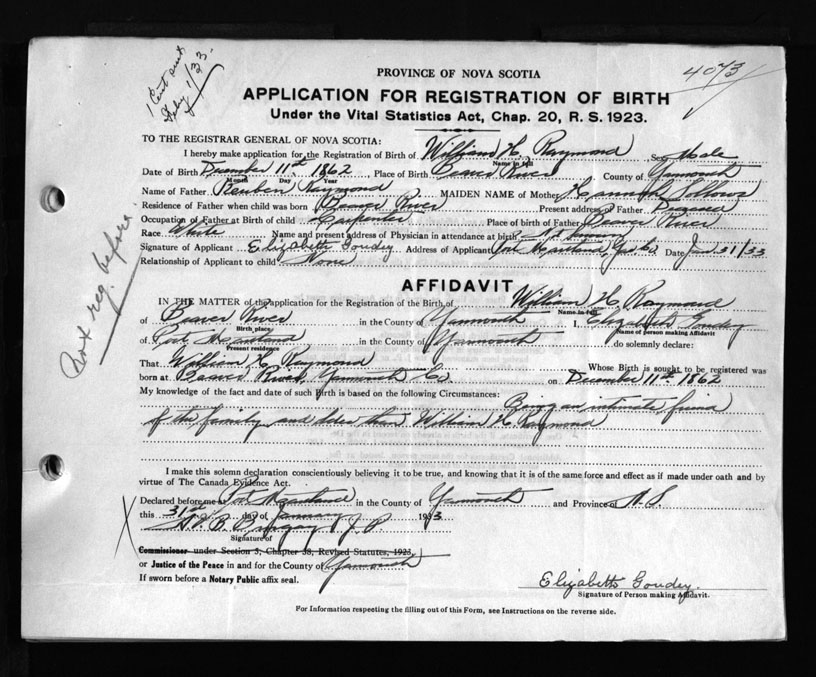 PROVINCE OF NOVA SCOTIA
4073
APPLICATION FOR REGISTRATION OF BIRTH
Under the Vital Statistics Act, Chap. 20, R. S. 1923.
1 Cert sent
Feby 1/33.
TO THE REGISTRAR GENERAL OF NOVA SCOTIA:
I hereby make application for the Registration of Birth of William H. Raymond Sex Male
Name in full
Date of Birth December 11th 1862 Place of Birth Beaver River County of Yarmouth
Month Day Year
Name of Father Reuben Raymond MAIDEN NAME of Mother Hannah Sollows
Residence of Father when child was born Beaver River Present address of Father Deceased
Occupation of Father at Birth of child Carpenter Place of birth of Father Beaver River
Race White Name and present address of Physician in attendance at birth
Signature of Applicant Elizabeth Goudey Address of Applicant Port Maitland, Yar. Co. Date Jan 31/33
Relationship of Applicant to child None
Not reg. before.
AFFIDAVIT
IN THE MATTER of the application for the Registration of the Birth of William H. Raymond
Name in full
of Beaver River in the County of Yarmouth I, Elizabeth Goudey
Birth place Name of person making Affidavit
of Port Maitland in the County of Yarmouth do solemnly declare:
Present residence
That William H. Raymond Whose Birth is sought to be registered was
born at Beaver River, Yarmouth Co. on December 11th 1862
My knowledge of the fact and date of such Birth is based on the following Circumstances: Being an intimate friend
of the family and older than William H. Raymond
I make this solemn declaration conscientiously believing it to be true, and knowing that it is of the same force and effect as if made under oath and by
virtue of The Canada Evidence Act.
Declared before me Port Maitland in the County of Yarmouth and Province of N. S.
this 31st day of January 1933
X
B. J. P.
Signature of
Commissioner under Section 3, Chapter 38, Revised Statutes, 1923,
or Justice of the Peace in and for the County of Yarmouth
If sworn before a Notary Public affix seal.
Elizabeth Goudey.
Signature of Person making Affidavit.
For Information respecting the filling out of this Form, see Instructions on the reverse side.